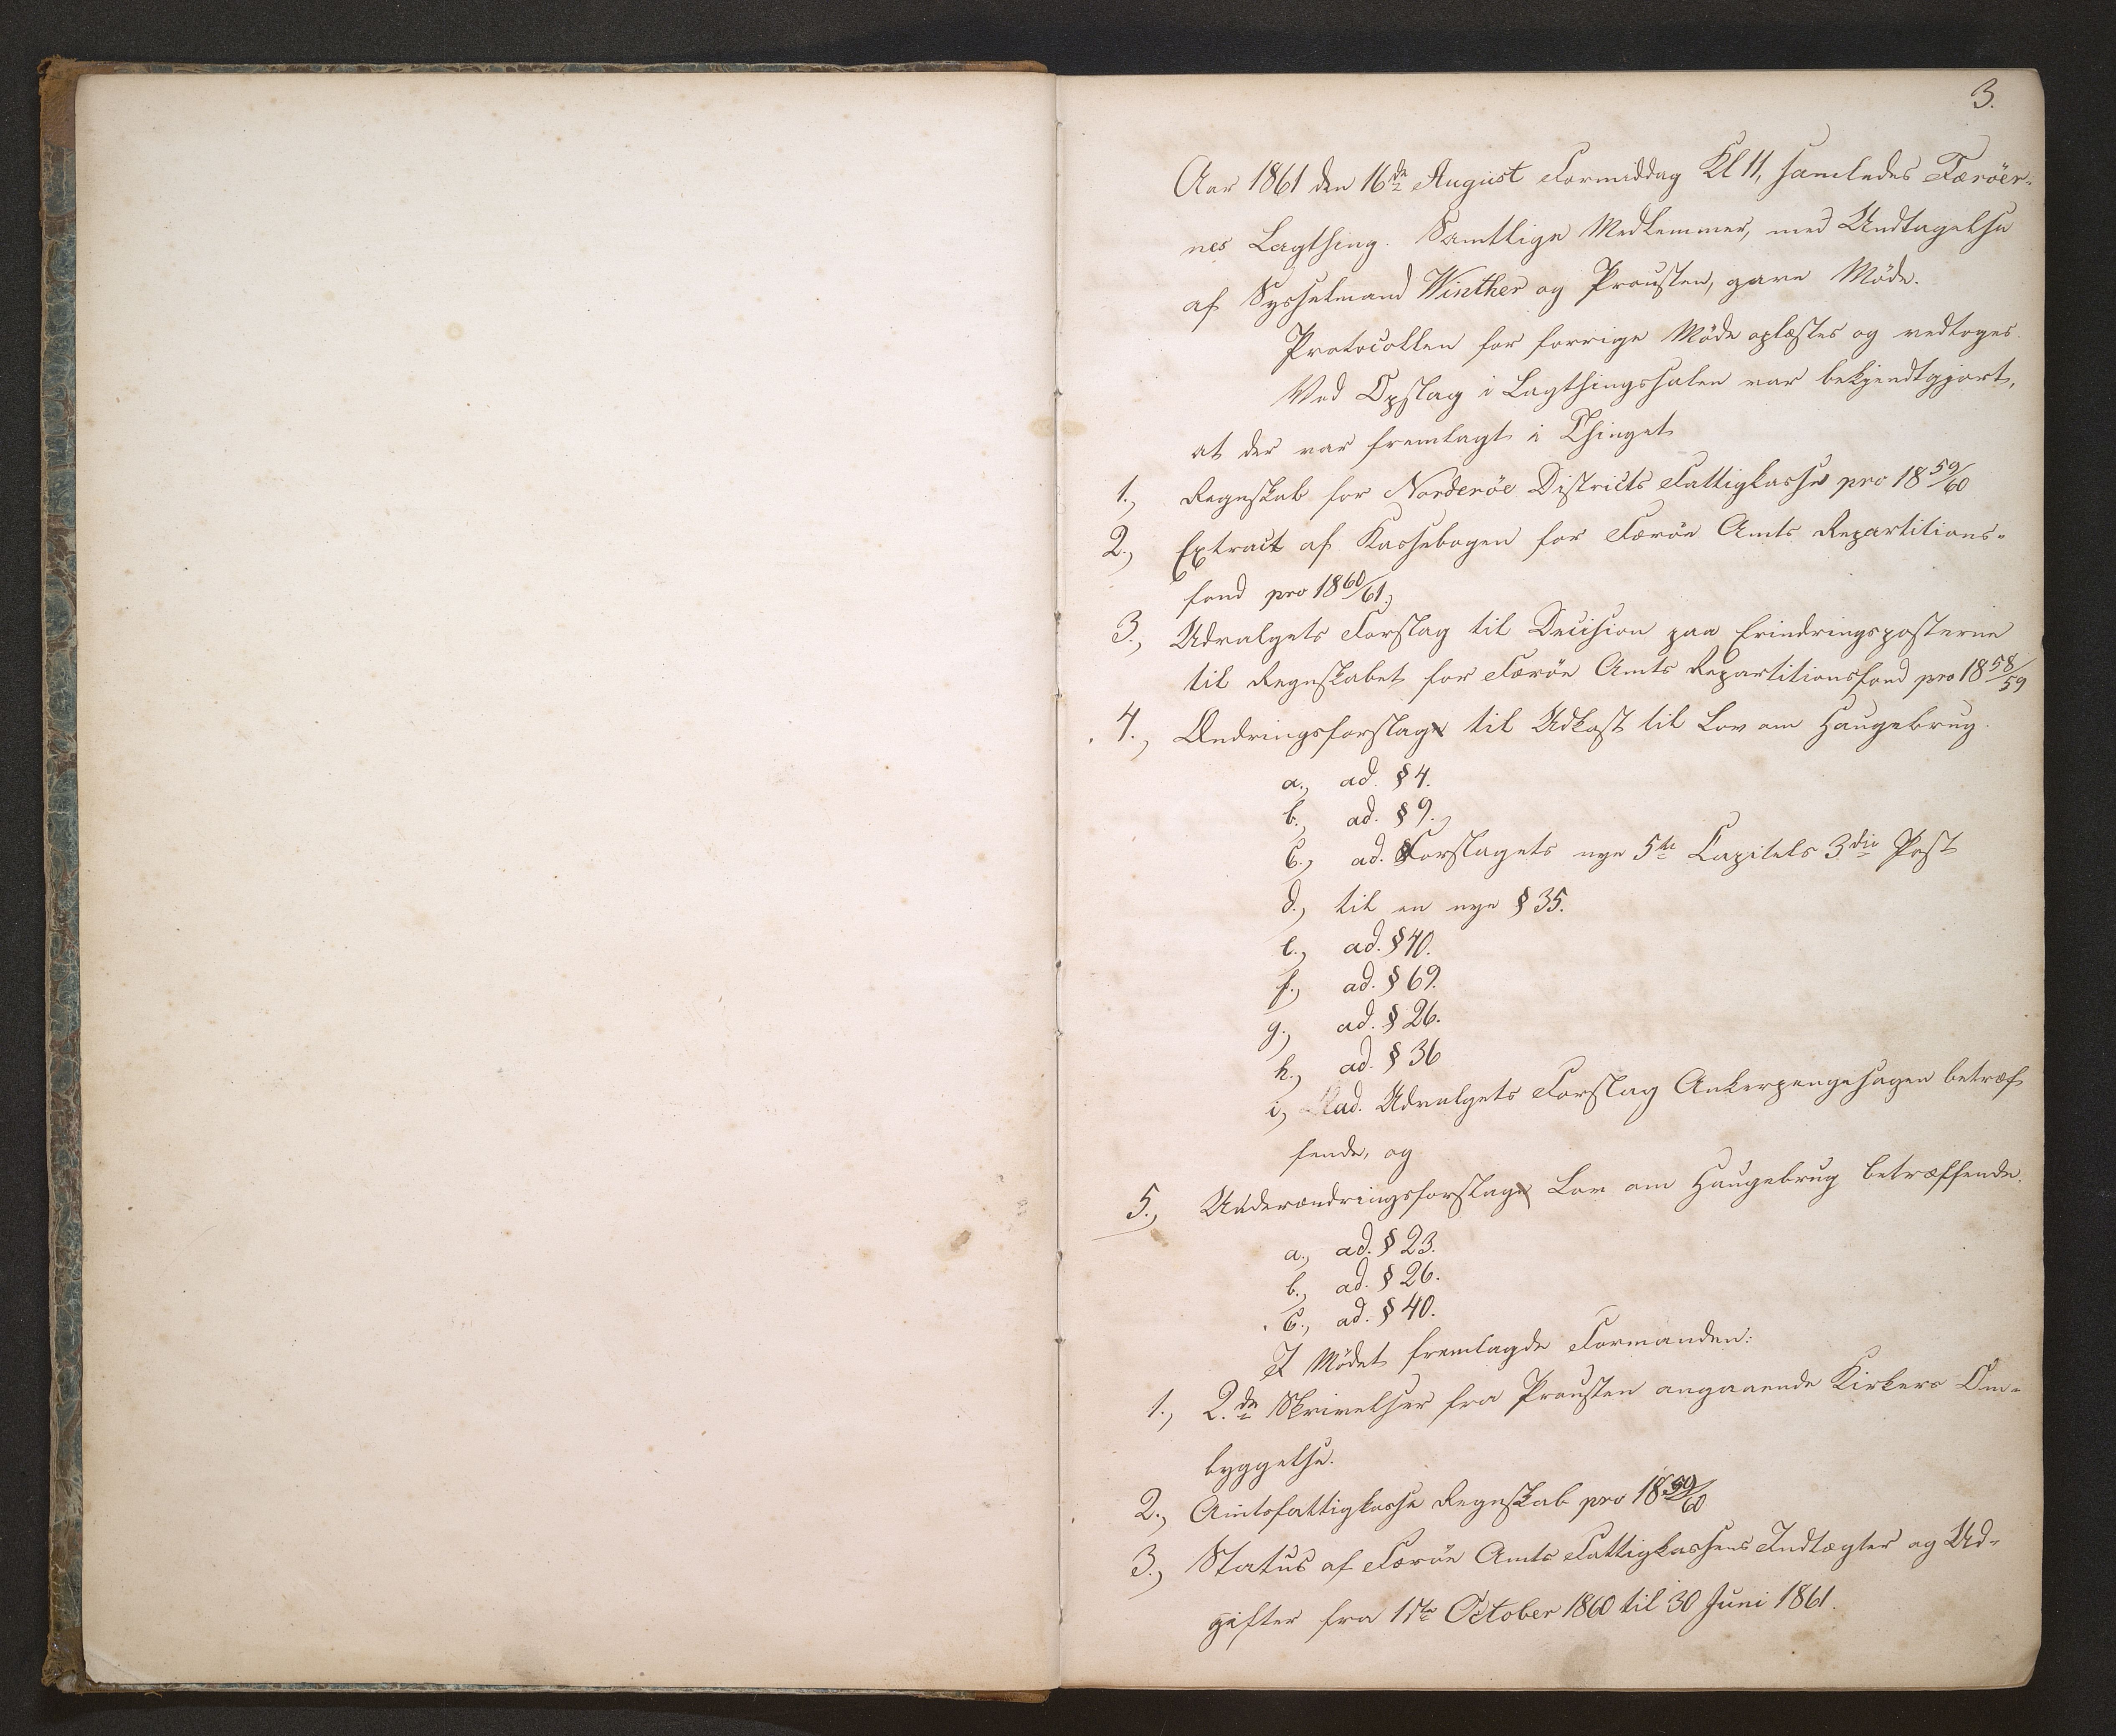 3.
Aar 1861 den 16de August Formiddag Kl 11, samledes Færöer-
nes Lagthing. Samtlige Medlemmer, med Undtagelse
af Sysselmand Winther og Prousten, gave Möde.
Protocollen for forrige Möde oplæstes og vedtoges.
Ved Opslag i Lagthingssalen var bekjendtgjort,
at der var fremlagt i Thinget
1., Regnskab for Norderöe Districts Fattigkasse pro 18 59/60
2., Extract af Kassebogen for Færöe Amts Repartitions-
fond pro 18 60/61,
3., Udvalgets Forslag til Decision paa Erindringsposterne
til Regnskabet for Færöe Amts Repartitionsfond pro 18 58/59
4., Ændringsforslag til Udkast til Lov om Haugebrug.
a., ad. § 4.
b., ad. § 9.,
c., ad. Forslagets nye 5te Capitels 3die Post
d., til en nye § 35.
e., ad. § 40.
f., ad. § 69.
g., ad. § 26.
h., ad. § 36
i, ad. Udvalgets Forslag Ankerpengesagen betræf
fende, og
5., Underændringsforslag Lov om Haugebrug betræffende.
a., ad. § 23.
b., ad. § 26.
c., ad. § 40.
I Mödet fremlagde Formanden:
1., 2.de Skrivelser fra Prousten angaaende Kirkers Om-
byggelse.
2., Amtsfattigkasse Regnskab pro 18 59/60
3., Status af Færöe Amts Fattigkassens Indtægter og Ud-
gifter fra 1ste October 1860 til 30 Juni 1861.